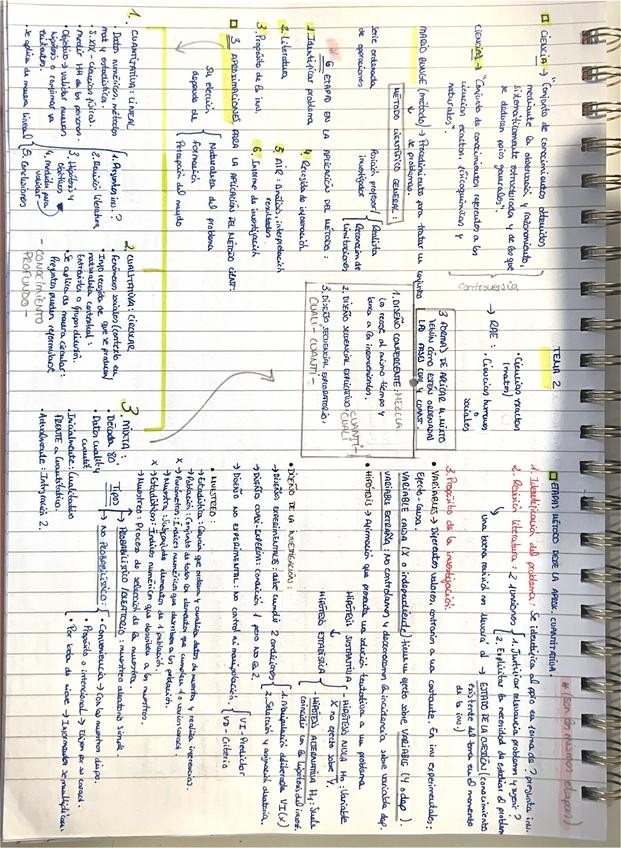 TEMA 2
CIENCIA → "Conjunto de conocimientos obtenidos
mediante la observación y razonamiento,
sistemáticamente estructurados y de los que
se deducen ppios generales".
CIENCIAS → "Conjunto de conocimientos relativos a las
ciencias exactas, fisicoquímicas y
naturales".
Controversia
→ RAE:
· Ciencias exactas
(mates)
· Ciencias humanas
o
sociales
MARIO BUNGE (método) → Procedimiento para tratar un conjunto
de problemas.
MÉTODO CIENTÍFICO GENERAL:
Serie ordenada
de operaciones
Posición profesor/
investigador
Realista
Limitaciones
* 6 ETAPAS EN LA APLICACIÓN DEL MÉTODO:
1. Identificar problema
2. Literatura
3. Propósito de la inv.
4. Recogida de información
5. AIR: Análisis, interpretación
resultados
6. Informe de investigación
3 APROXIMACIONES PARA LA APLICACIÓN DEL MÉTODO CIENT:
Su elección
depende de
Naturaleza del problema
Formación
Percepción del mundo
1. CUANTITATIVA: LINEAL
· Datos numéricos, métodos
mat y estadística.
· S. XIX - ciencias físicas.
· Objetivo → validar
hipótesis o confirmar va
Se aplica de manera lineal
2. Revisión literatura
3. Hipótesis y
objetivos
4.
validar
5. Conclusiones
2. CUALITATIVA: CIRCULAR
· Fenómenos sociales (contexto en
que se producen)
naturaleza contextual:
Entrevista o grupo discusión.
· Se aplica de manera circular:
Preguntas pueden reformularse
- CONOCIMIENTO
PROFUNDO -
3. MIXTA:
· Década 80
· Datos cuali y
cuanti
· Inicialmente: Cualitativo
FRENTE a Cuantitativo.
· Actualmente: Integración 2.
3 FORMAS DE APLICAR EL MIXTO
SEGÚN CÓMO ESTÉN ORDENADAS
LAS FASES CUALI Y CUANTI.
1. DISEÑO CONVERGENTE: MEZCLA
Lo recoge al mismo tiempo y
2. DISEÑO SECUENCIAL EXPLICATIVO CUANTI-
CUALI
3. DISEÑO SECUENCIAL EXPLORATORIO.
CUALI - CUANTI -
* (son las mismas etapas)
ETAPAS MÉTODO DESDE LA APROX. CUANTITATIVA.
1. Identificación del problema: Se identifica al ppio en forma de ? pregunta inv.
2. Revisión literatura: 2 funciones
1. Justificar relevancia problema y
2. Explicitar la necesidad de estudiar el problema
una buena revisión nos llevará al → ESTADO DE LA CUESTIÓN (conocimiento
existente del tema en el momento
de la inv.)
3. Propósito de la investigación:
· VARIABLES → Diferentes valores, contrario a una constante. En inv. experimentales:
efecto-causa.
VARIABLE CAUSA (X o independiente) tiene un efecto sobre VARIABLE (Y o dep).
VARIABLE EXTRAÑA: No controlamos y desconocemos la incidencia sobre variable dep.
· HIPÓTESIS → Afirmación que presenta una solución tentativa a un problema.
HIPÓTESIS SUSTANTIVA
HIPÓTESIS ESTADÍSTICA
HIPÓTESIS NULA H₀: Variable
X no efecto sobre Y.
HIPÓTESIS ALTERNATIVA H₁: Suele
coincidir con la hipótesis del inves.
· DISEÑO DE LA INVESTIGACIÓN:
→ DISEÑO EXPERIMENTALES: debe cumplir 2 condiciones
1. Manipulación deliberada VI (X)
2. Selección y asignación aleatoria.
→ DISEÑO CUASI-EXPERIM: condición 1 pero no la 2.
→ DISEÑO NO EXPERIMENTAL: No control ni manipulación
VI - Predictor
VD - Criterio
· MUESTREO:
→ Estadística: Ciencia que ordena y analiza datos de muestra y realiza inferencias.
→ Población: Conjunto de todos los elementos que cumplen 1 o varias caract.
x → Parámetros: Índices numéricos que describen a las población.
→ Muestra: Subconjunto elementos de 1 población.
x → Estadísticos: Índices numéricos que describen a las muestras.
→ Muestreo: Proceso de selección de la muestra.
Tipos
→ PROBABILÍSTICO/ALEATORIO: muestreo aleatorio simple
→ NO PROBABILÍSTICO:
· Conveniencia → Con las muestras dispo.
· Propósito o intencional →
· Por bola de nieve → Informantes se multiplican.